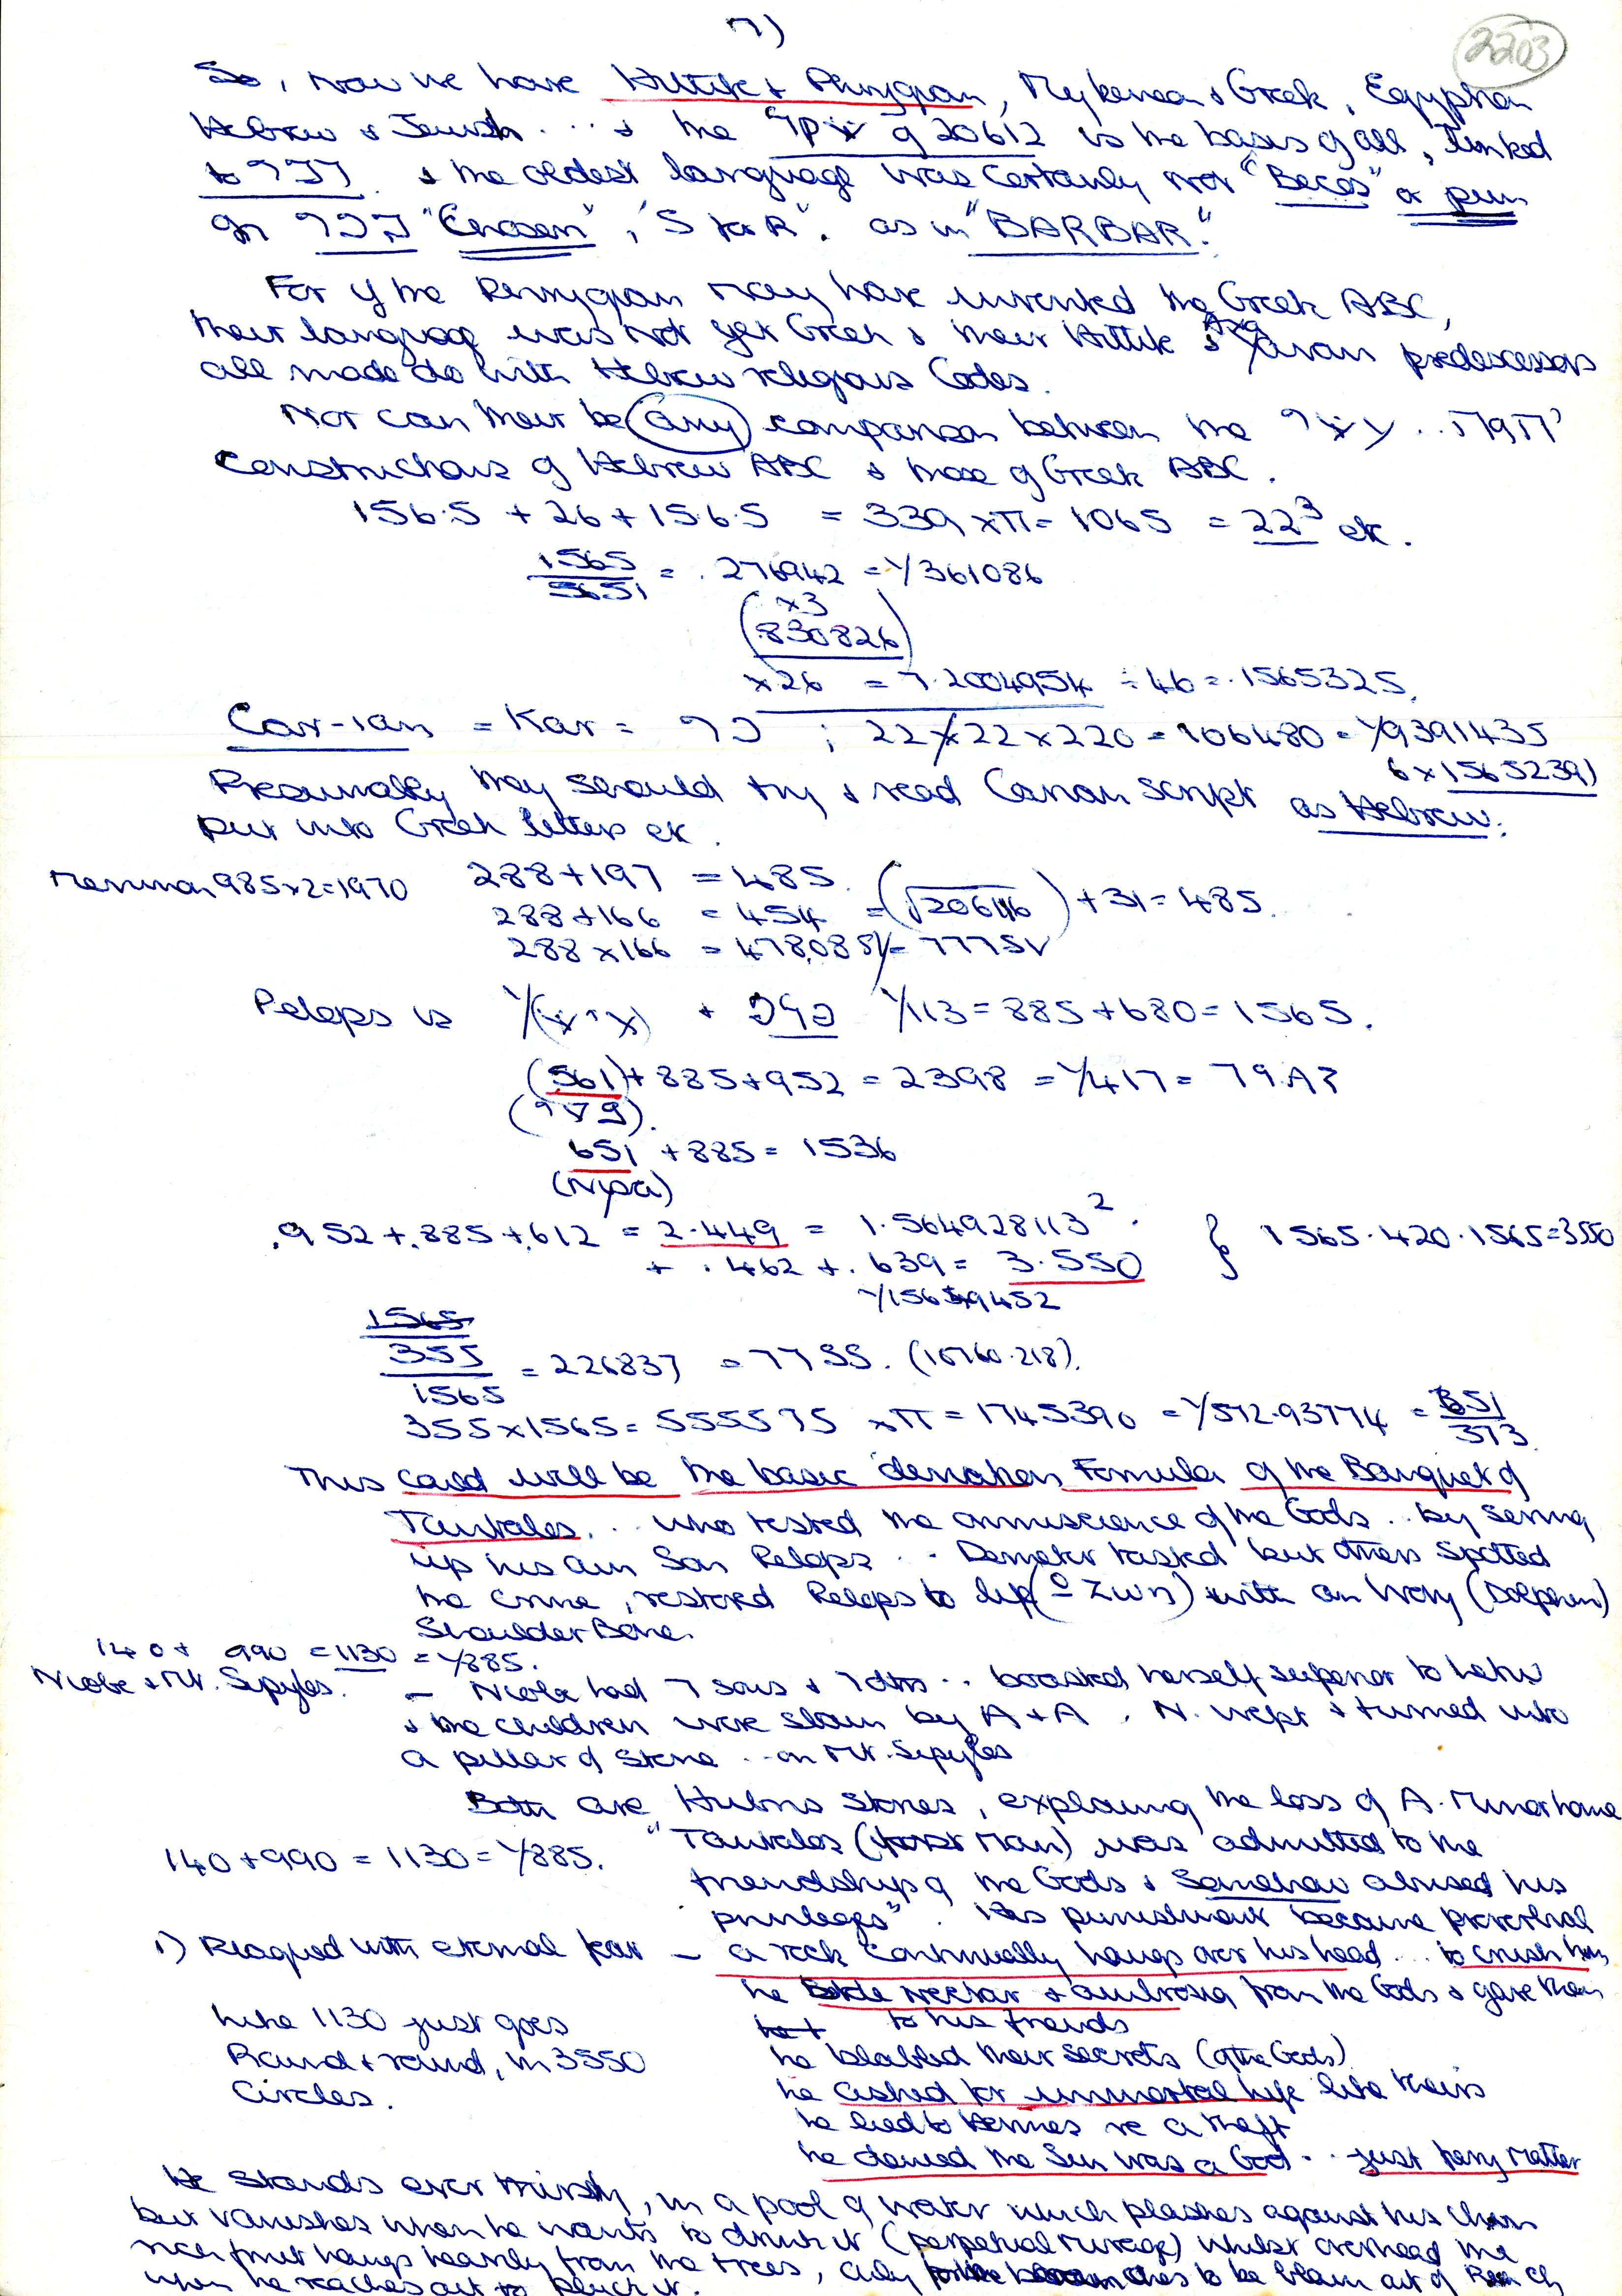 7)
2203
So, now we have Hittite & Phrygian, Mykenean & Greek, Egyptian
Hebrew & Jewish ... & the of 20612 is the basis of all, linked
to & the oldest language was certainly not "Becos" a pun
on "Chosen", as in "BARBAR".
For if the Phrygian may have invented the Greek ABC,
their language was not yet Greek & their Hittite & predecessors
all made do with Hebrew religious Codes.
Nor can their be any comparison between the
Constructions of Hebrew ABC & those of Greek ABC.
156.5 + 26 + 156.5 = 339 x π = 1065 = 22³ etc.
1565/5651 = .276942 = 1/361086
x3
(.830826)
x26 = 7.2004954 ÷ 46 = .1565325.
Car-ian = Kar = ; 22 x 22 x 220 = 106480 = 1/9391435
6 x 1565239)
Presumably they should try & read Carian script as Hebrew.
put into Greek letters etc.
Memnon 985x2=1970 288+197 = 485.
288+166 = 454 = (√206116) + 31 = 485.
288 x 166 = 478.08
Pelops is + 1/113 = 885+680 = 1565.
(561) + 885 + 952 = 2398 = 1/417 =
651 + 885 = 1536
.952 + .885 + .612 = 2.449 = 1.564928113². } 1565.420.1565=3550
+ .462 + .639 = 3.550
1565
355/1565 = 226837 = 7755. (10760.218).
355x1565 = 555575 x π = 1745390 = 1/572.93774 = 651/373
This could well be the basic derivation Formula of the Banquet of
Tantalos... who tested the omniscience of the Gods.. by serving
up his own Son Pelops .. Demeter tasted but others spotted
the crime, restored Pelops to life with an Ivory (Dolphin)
Shoulder Bone.
140 + 990 = 1130 = 1/885.
Niobe & Mt. Sipylos. - Niobe had 7 sons & 7 dtrs .. boasted herself superior to Leto
& the children were slain by A & A, N. wept & turned into
a pillar of stone ... on Mt. Sipylos
Both are Hubris stories, explaining the loss of A. Minor home
140 + 990 = 1130 = 1/885. "Tantalos (first Man) was admitted to the
friendship of the Gods & Somehow abused his
privileges". His punishment became proverbial
1) Plagued with eternal fear - a rock continually hangs over his head... to crush him,
he Stole nectar & ambrosia from the Gods & gave them
to his friends
like 1130 just goes
he blabbed their secrets (of the Gods)
Round & round, in 3550
he asked for immortal life like theirs
Circles.
he lied to Hermes re a theft
he denied the Sun was a God .. just fiery matter
He stands ever thirsty, in a pool of water which plashes against his Chin
but vanishes when he wants to drink it (perpetual mirage) whilst overhead the
rich fruit hangs heavily from the trees, only to be blown out of Reach
when he reaches out to pluck it.